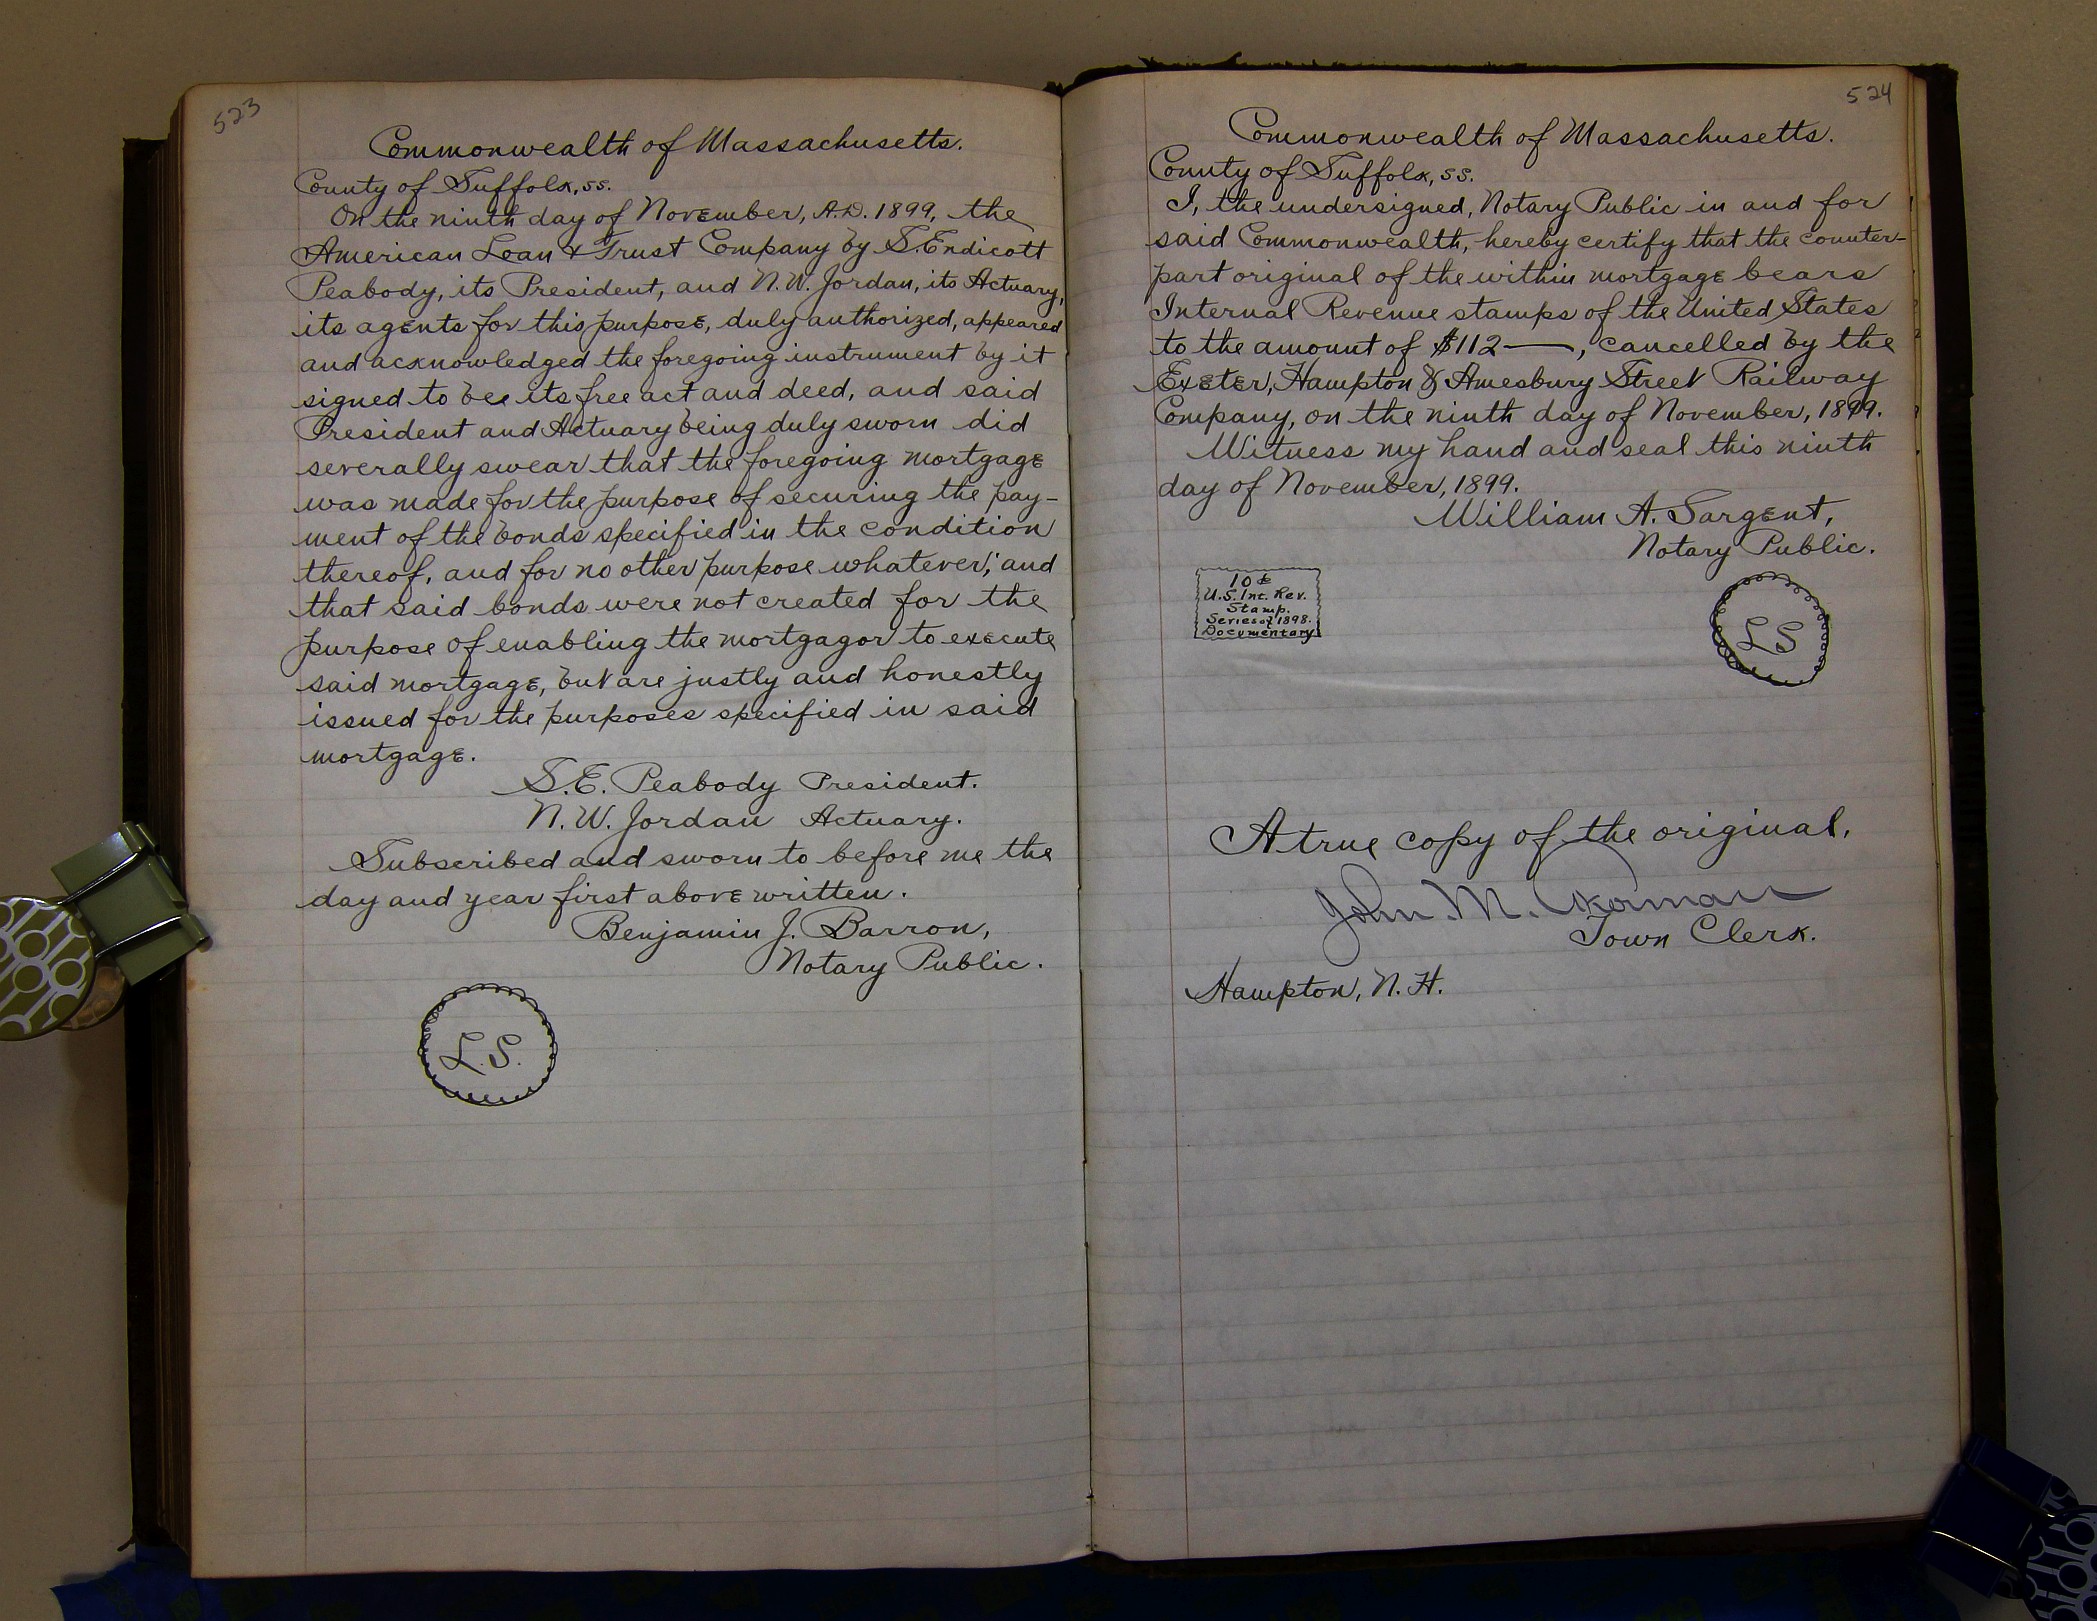 523
Commonwealth of Massachusetts.
County of Suffolk, ss.
On the ninth day of November, A.D. 1899, the
American Loan & Trust Company by S. Endicott
Peabody, its President, and N. W. Jordan, its Actuary,
its agents for this purpose, duly authorized, appeared
and acknowledged the foregoing instrument by it
signed to bee its free act and deed, and said
President and Actuary being duly sworn did
severally swear that the foregoing mortgage
was made for the purpose of securing the pay-
ment of the bonds specified in the condition
thereof, and for no other purpose whatever; and
that said bonds were not created for the
purpose of enabling the mortgagor to execute
said mortgage, but are justly and honestly
issued for the purposes specified in said
mortgage.
S. E. Peabody President.
N. W. Jordan Actuary.
Subscribed and sworn to before me the
day and year first above written.
Benjamin J. Barron,
Notary Public.
L.S.
524
Commonwealth of Massachusetts.
County of Suffolk, ss.
I, the undersigned, Notary Public in and for
said Commonwealth, hereby certify that the counter-
part original of the within mortgage bears
Internal Revenue stamps of the United States
to the amount of $112—, cancelled by the
Exeter, Hampton & Amesbury Street Railway
Company, on the ninth day of November, 1899.
Witness my hand and seal this ninth
day of November, 1899.
William A. Sargent,
Notary Public.
10¢
U.S. Int. Rev.
Stamp.
Series of 1898.
Documentary
LS
A true copy of the original.
John M. Akerman
Town Clerk.
Hampton, N. H.